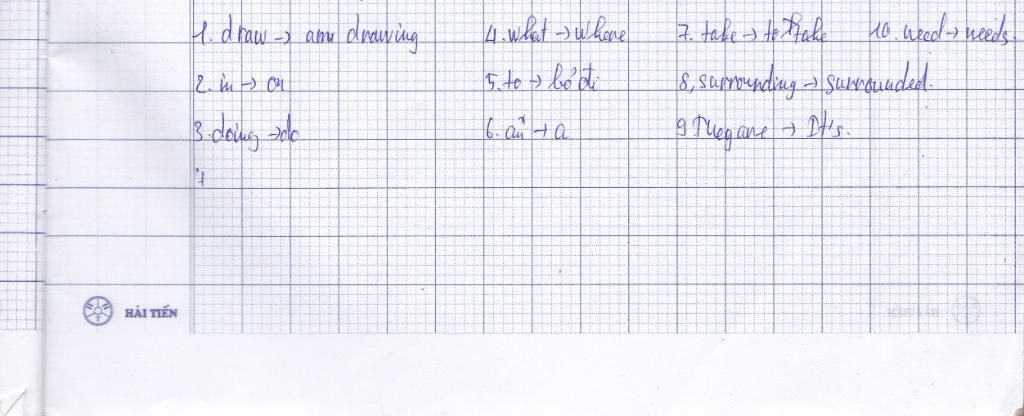 1. draw → am drawing 4. what → where 7. take → to take 10. need → needs.
2. in → on 5. to → bỏ đi 8, surrounding → surrounded.
3. doing → do 6. an → a 9 They are → It's.
HẢI TIẾN